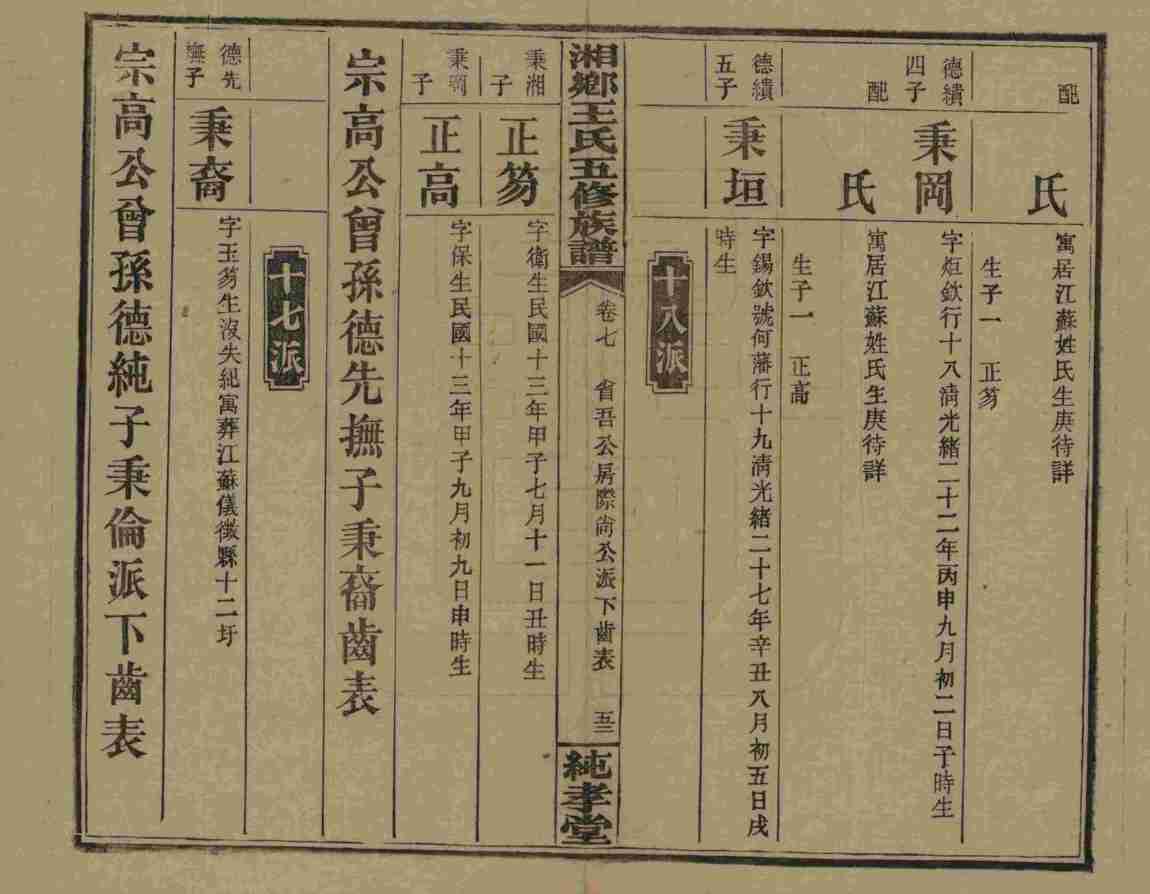 配
氏
寓居江蘇姓氏生庚待詳
生子一 正笏
德績
四子
秉岡
字炬欽行十八清光緒二十二年丙申九月初二日子時生
配
氏
寓居江蘇姓氏生庚待詳
生子一 正高
德績
五子
秉垣
字錫欽號何藩行十九清光緒二十七年辛丑八月初五日戌
時生
十八派
湘鄉王氏五修族譜
卷七 省吾公房際尚公派下齒表 五三
純孝堂
秉湘
子
正笏
字衛生民國十三年甲子七月十一日丑時生
秉岡
子
正高
字保生民國十三年甲子九月初九日申時生
宗高公曾孫德先撫子秉裔齒表
十七派
德先
撫子
秉裔
字玉笏生沒失紀寓葬江蘇儀徵縣十二圩
宗高公曾孫德純子秉倫派下齒表